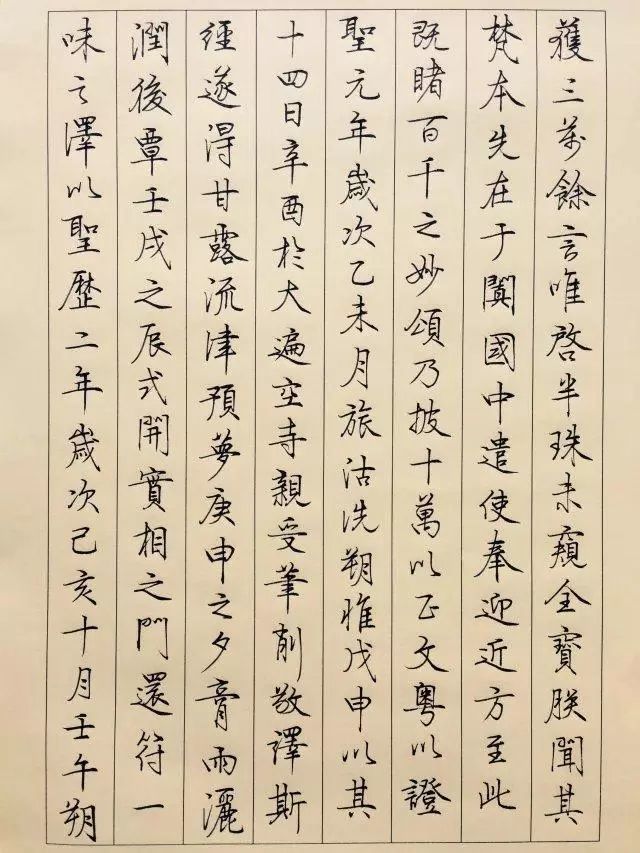 獲三萬餘言唯啓半珠未窺全寶朕聞其
梵本先在于闐國中遣使奉迎近方至此
既睹百千之妙頌乃披十萬以正文粵以證
聖元年歲次乙未月旅沽洗朔惟戊申以其
十四日辛酉於大遍空寺親受筆削敬譯斯
經遂得甘露流津預夢庚申之夕膏雨灑
潤後覃壬戌之辰式開實相之門還符一
味之澤以聖歷二年歲次己亥十月壬午朔